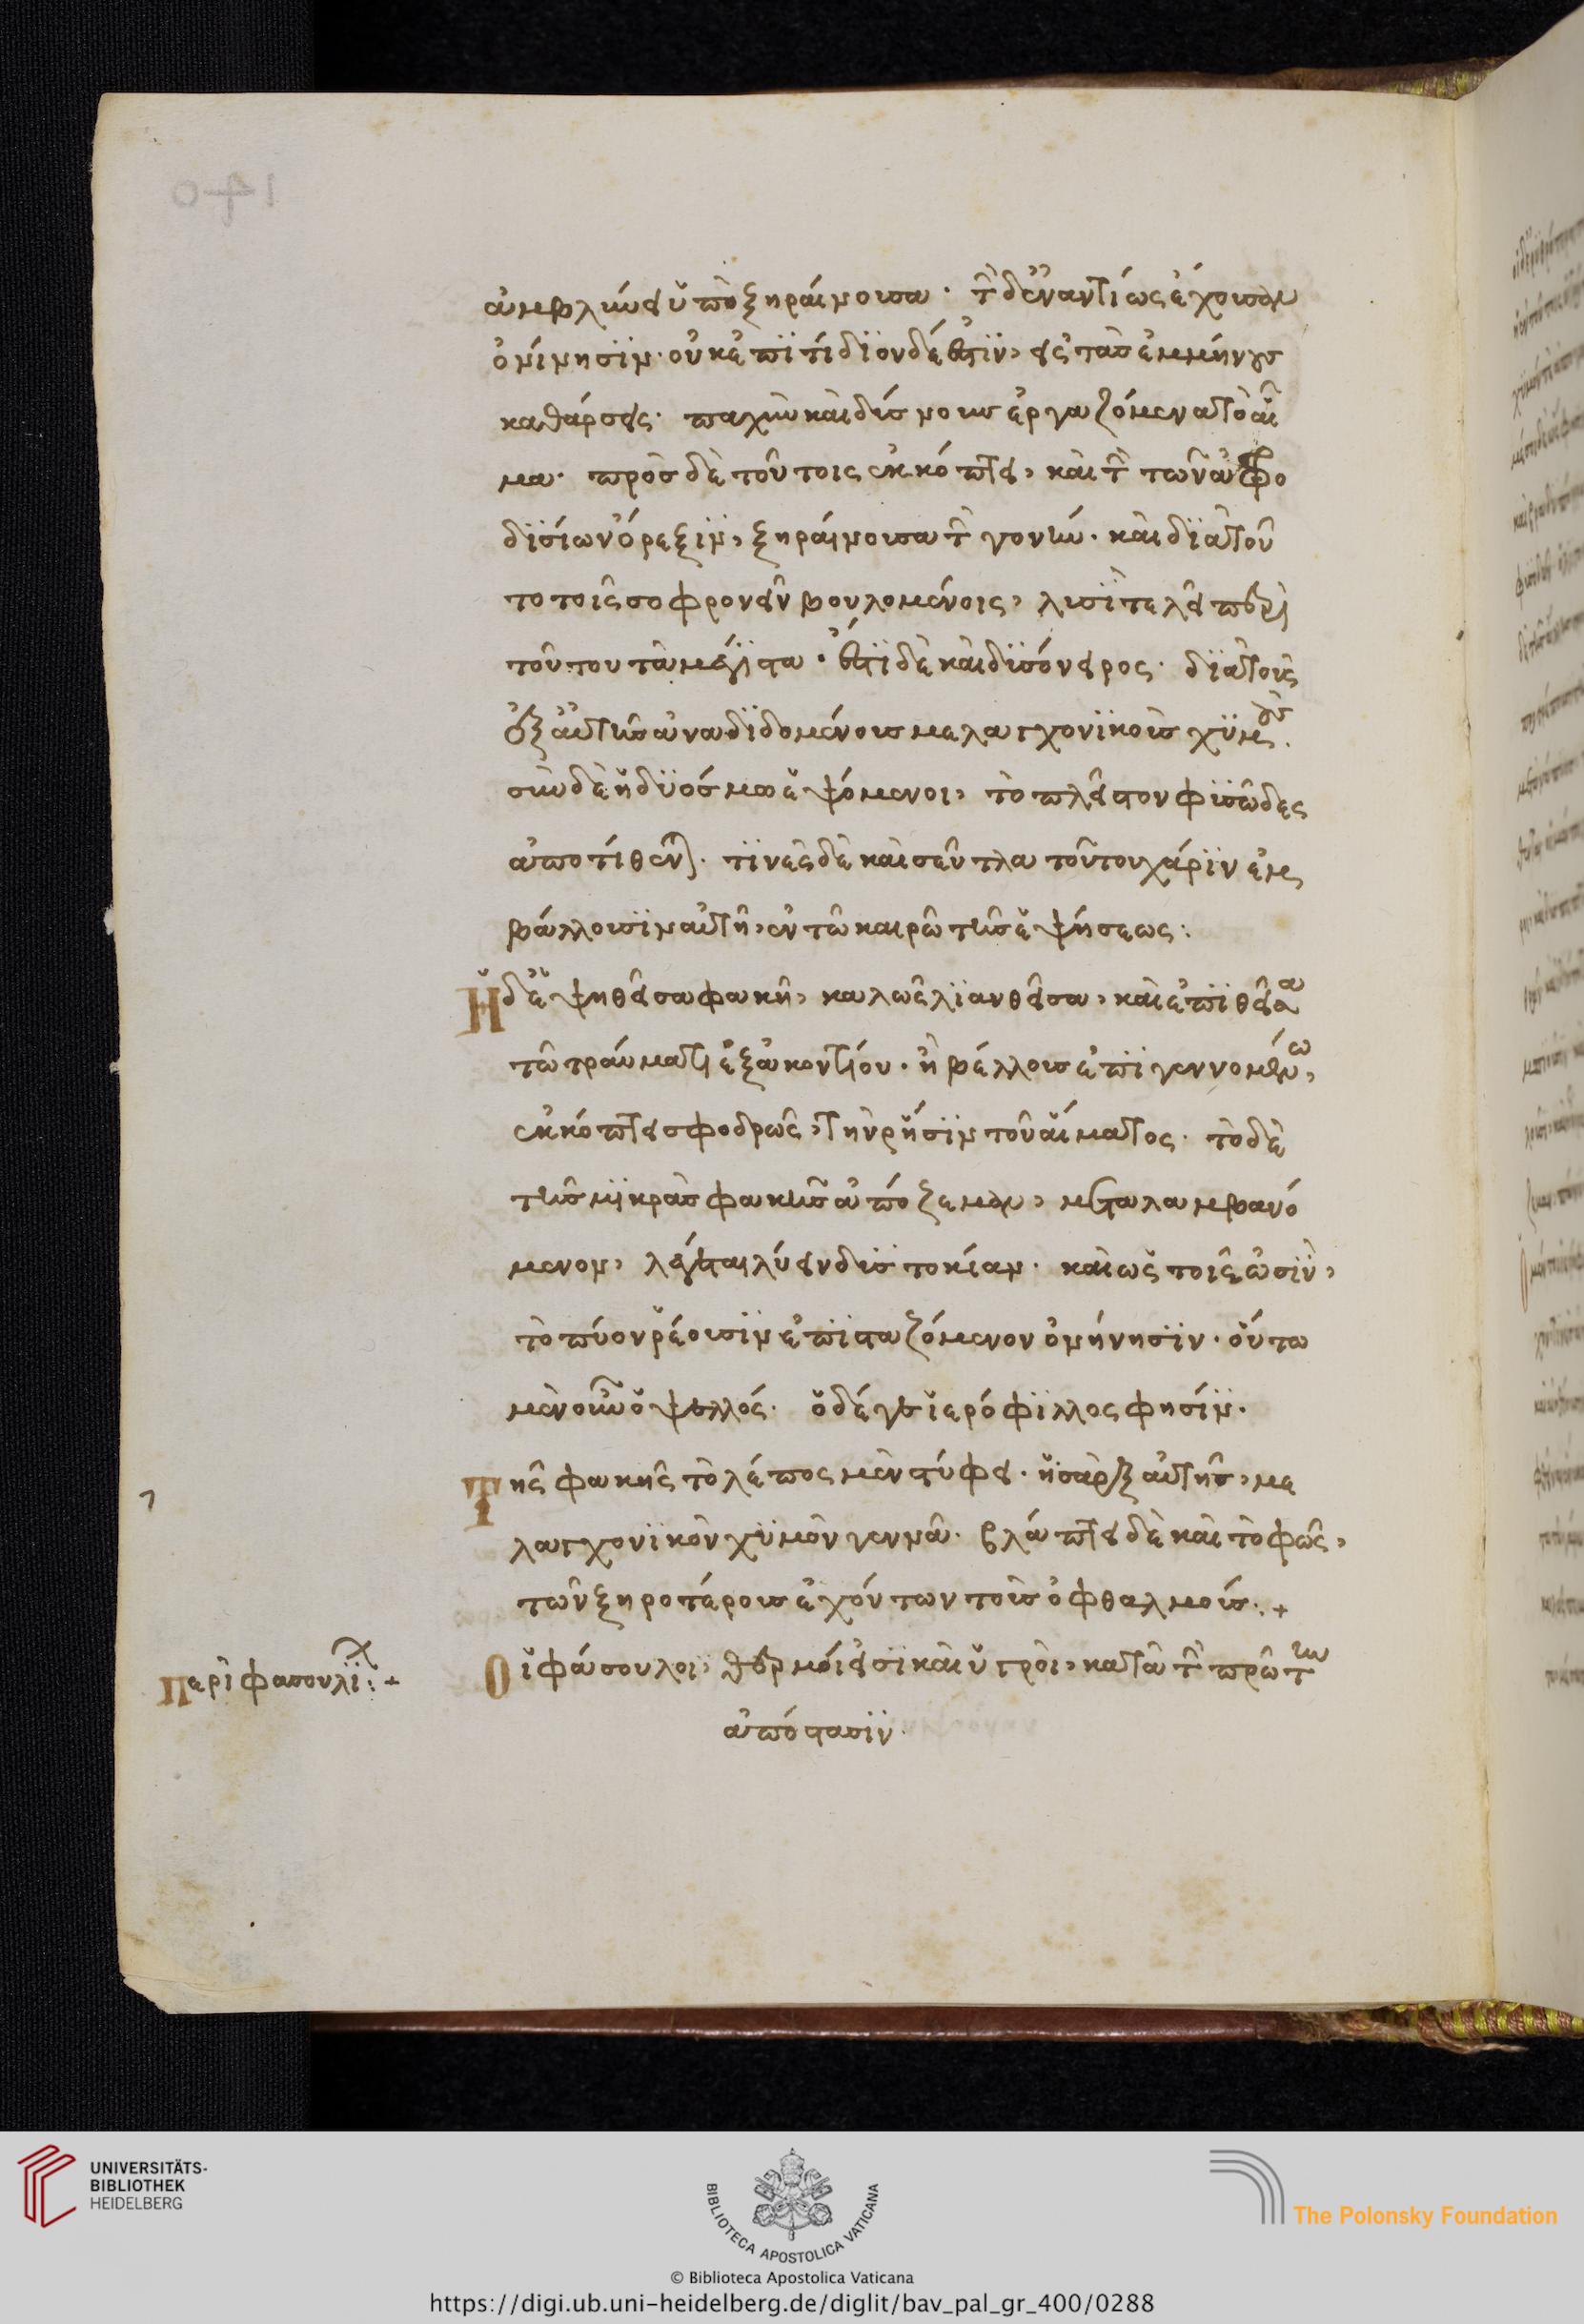 ἀμβλὺν ὑποξηραίνουσα· τὴν δ' ἐναντίως ἔχουσαν
ὀνίνησιν· οὐκ ἐπιτίδιον δέ ἐστιν, εἰς τὰς ἐμμήνους
καθάρσεις· παχὺ καὶ δύσνουν ἐργαζόμενα τὸ αἷ
μα· πρὸς δὲ τούτοις ἐκκόπτει, καὶ τὴν τῶν ἀφρο
δισίων ὄρεξιν, ξηραίνουσα τὴν γονὴν· καὶ διὰ τοῦ
το τοῖς σοφρονεῖν βουλομένοις, λυσιτελεῖ περὶ
τούτου τὰ μέγιστα· ἔστι δὲ καὶ δυσόνειρος· διὰ τοὺς
ἐξ αὐτῆς ἀναδιδομένους μελαγχονικοὺς χυμούς·
σὺν δὲ ἡδυόσμω ἑψόμενοι, τὸ πλεῖστον φυσῶδες
ἀποτίθενται· τινὲς δὲ καὶ σεῦτλα τούτου χάριν ἐμ
βάλλουσιν αὐτῆ, ἐν τῶ καιρῶ τῆς ἑψήσεως:
Ἡ δὲ ἑψηθεῖσα φακῆ, καλῶς λιανθεῖσα, καὶ ἐπιθεῖσα
τῶ τραύματι ἐξ ἀκοντίου· ἢ βέλλους ἐπιγεννομένω,
ἐκκόπτει σφοδρῶς, τὴν ῥῆσιν τοῦ αἵματος· τὸ δὲ
τῆς μικρᾶς φακῆς ἀπόζεμαν, μεταλαμβανό
μενον, λέγεται λύειν δυστοκίαν· καὶ ὡς τοῖς ὠσὶν,
τὸ πύον ῥέουσιν ἐπισταζόμενον ὀνήνησιν· οὕτω
μὲν οὖν ὁ ψελλός· ὁ δέ γε ἱερόφιλλος φησίν·
Τῆς φακῆς τὸ λέπος μὲν στύφει· ἡ σὰρξ αὐτῆς, με
λαγχονικὸν χυμὸν γεννᾶ· βλάπτει δὲ καὶ τὸ φῶς,
τῶν ξηροτέρους ἐχόντων τοὺς ὀφθαλμούς:+
Περὶ φασουλί:+
Οἱ φάσουλοι, θερμοί εἰσι καὶ ὑγροὶ, κατὰ τὴν πρώτην
ἀπόστασιν
UNIVERSITÄTS-
BIBLIOTHEK
HEIDELBERG
BIBLIOTECA APOSTOLICA VATICANA
The Polonsky Foundation
© Biblioteca Apostolica Vaticana
https://digi.ub.uni-heidelberg.de/diglit/bav_pal_gr_400/0288